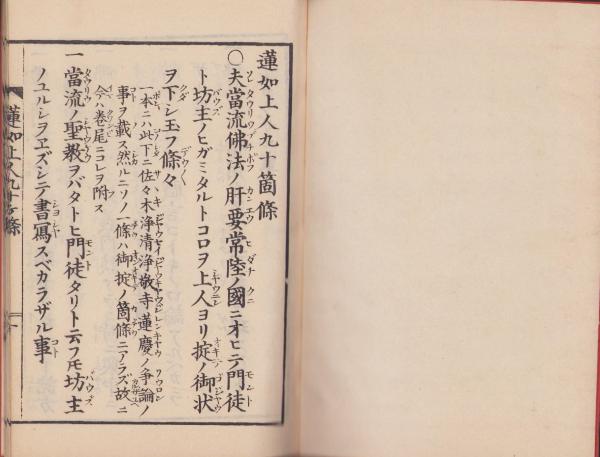 蓮如上人九十箇條
〇夫當流佛法ノ肝要常陸ノ國ニオヒテ門徒
ト坊主ノヒガミタルトコロヲ上人ヨリ掟ノ御状
ヲ下シ玉フ條々
一本ニハ此下ニ佐々木浄清浄敬寺蓮慶ノ争論ノ
事ヲ載ス然ルニソノ一條ハ御掟ノ箇條ニアラズ故ニ
今ハ巻尾ニコレヲ附ス
一當流ノ聖教ヲバタトヒ門徒タリト云フモ坊主
ノユルシヲヱズシテ書寫スベカラザル事
蓮如上人九十ケ條